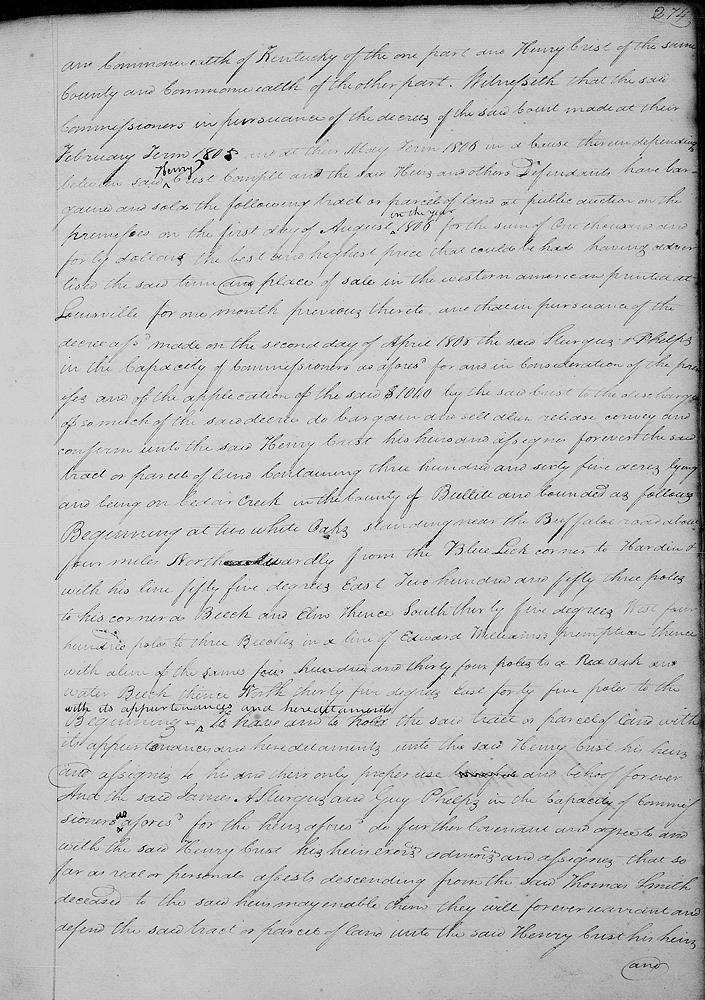 274
and Commonwealth of Kentucky of the one part and Henry Crist of the same
County and Commonwealth of the other part. Witnesseth that the said
Commissioners in pursuance of the decrees of the said Court made at their
February Term 1808 and at their May Term 1806 in a cause therein depending
between said Henry Crist Complt and the said Heirs and others Defendants have bar-
gained and sold the following tract or parcel of land at public auction on the
premises on the first day of August in the year 1806 for the sum of One thousand and
forty dollars the best and highest price that could be had having adver
tised the said time and place of sale in the western american printed at
Louisville for one month previous thereto and that in pursuance of the
decree afsd made on the second day of April 1808 the said Sturgus & Phelps
in the Capacity of Commissioners as aforesd for and in Consideration of the premi
ses and of the application of the said $1040 by the said Crist to the discharge
of so much of the said decree do bargain and sell alien release convey and
confirm unto the said Henry Crist his heirs and assigns forever the said
tract or parcel of land Containing three hundred and sixty five acres lying
and being on Cedar Creek in the County of Bullitt and bounded as follows
Beginning at two white Oaks standing near the Buffaloe road about
four miles Northwardly from the Blue Lick corner to Hardin &
with his line fifty five degrees East Two hundred and fifty three poles
to his corner a Beech and Elm thence South thirty five degrees West four
hundred poles to three Beeches in a line of Edward Williams's premption thence
with a line of the same four hundred and thirty four poles to a Red Oak and
water Beech thence North thirty five degrees East forty five poles to the
with its appurtenances and hereditaments
Beginning To have and to hold the said tract or parcel of land with
its appurtenances and hereditaments unto the said Henry Crist his heirs
and assigns to his and their only proper use and behoof forever
And the said James A Sturgus and Guy Phelps in the Capacity of Commis
sioners as aforesd for the heirs aforesd do further Covenant and agree to and
with the said Henry Crist his heirs exors admors and assigns that so
far as real or personal assets descending from the said Thomas Smith
deceased to the said heirs may enable them they will forever warrant and
defend the said tract or parcel of land unto the said Henry Crist his heirs
and